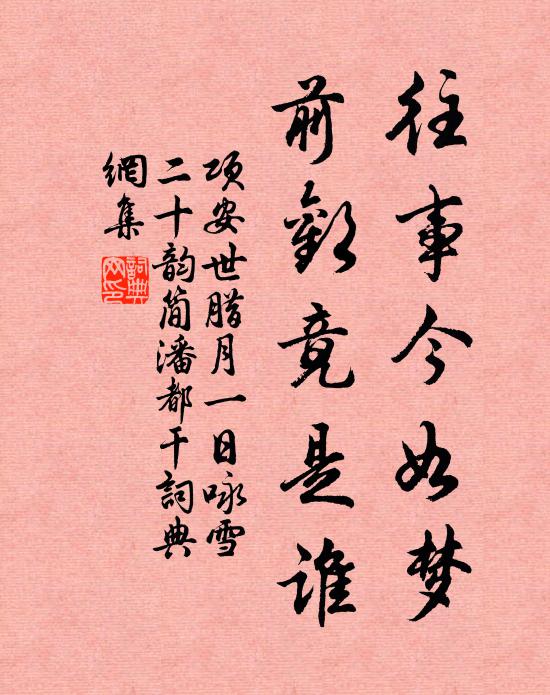 往事今如梦
前歓竟是谁
项安世腊月一日咏雪
二十韵简潘都干詞典
網集
詞典網印